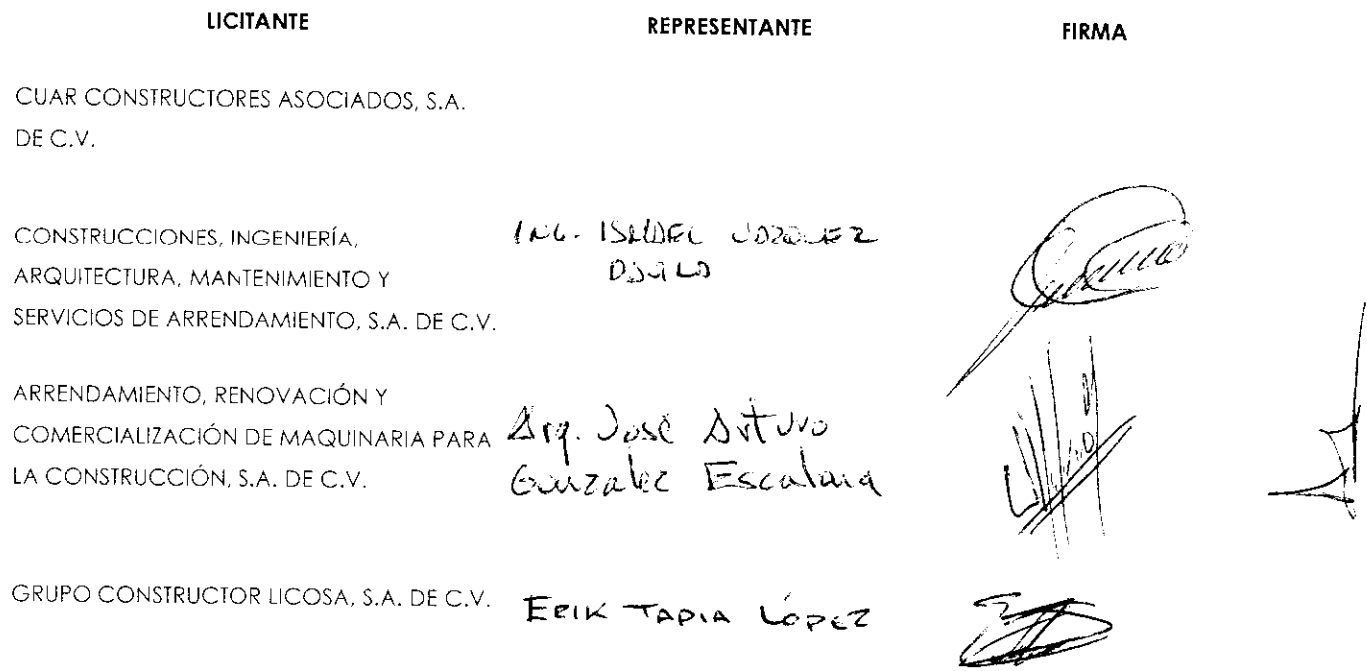 LICITANTE REPRESENTANTE FIRMA
CUAR CONSTRUCTORES ASOCIADOS, S.A.
DE C.V.
CONSTRUCCIONES, INGENIERÍA,
ARQUITECTURA, MANTENIMIENTO Y
SERVICIOS DE ARRENDAMIENTO, S.A. DE C.V.
ING. ISMAEL
ARRENDAMIENTO, RENOVACIÓN Y
COMERCIALIZACIÓN DE MAQUINARIA PARA
LA CONSTRUCCIÓN, S.A. DE C.V.
Arq. José Arturo
Gonzalez
GRUPO CONSTRUCTOR LICOSA, S.A. DE C.V.
ERIK TAPIA LÓPEZ